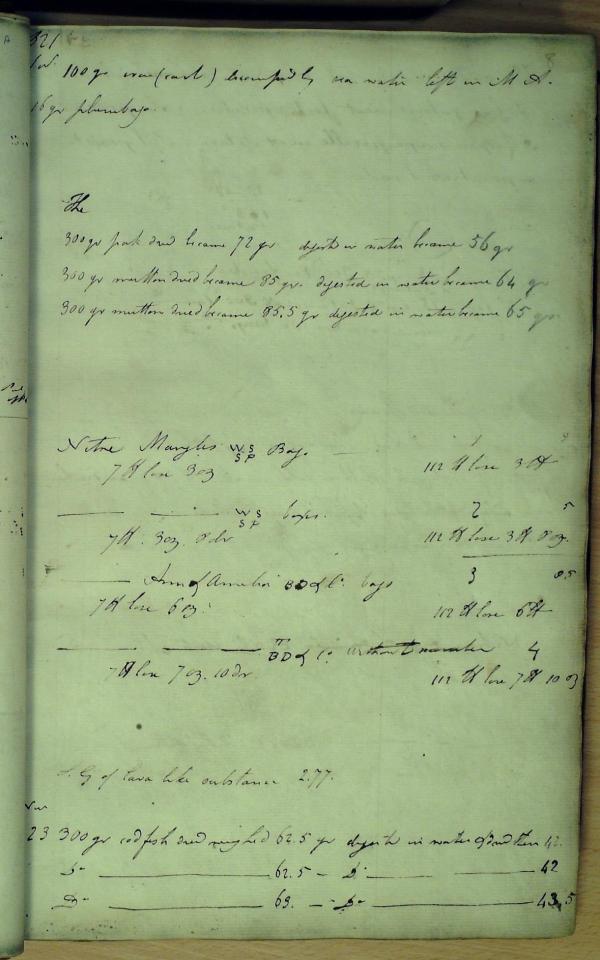 321
100 gr iron (cast) by sea water left in M A.
16 gr plumbago.
The
300 gr pork dried became 72 gr digested in water became 56 gr
300 gr mutton dried became 85 gr. digested in water became 64 gr
300 gr mutton dried became 85.5 gr digested in water became 65 gr
Nitre Mangles WS SP Bags — 1
7 ℔ lose 3 oz 112 ℔ lose 3 ℔
—— —— WS SP bags. 2 5
7 ℔. 3 oz. 8 dr 112 ℔ lose 3 ℔ 8 oz.
—— Ann & Amelia BD & Co. bags 3 8.5
7 ℔ lose 6 oz. 112 ℔ lose 6 ℔
—— —— T BD & Co. without number 4
7 ℔ lose 7 oz. 10 dr 112 ℔ lose 7 ℔ 10 oz
S. G of lava like substance 2.77.
Nov
23 300 gr codfish dried weighed 62.5 gr digested in water & dried then 42.
Do —— 62.5 — Do —— 42
Do —— 63. — Do —— 43.5